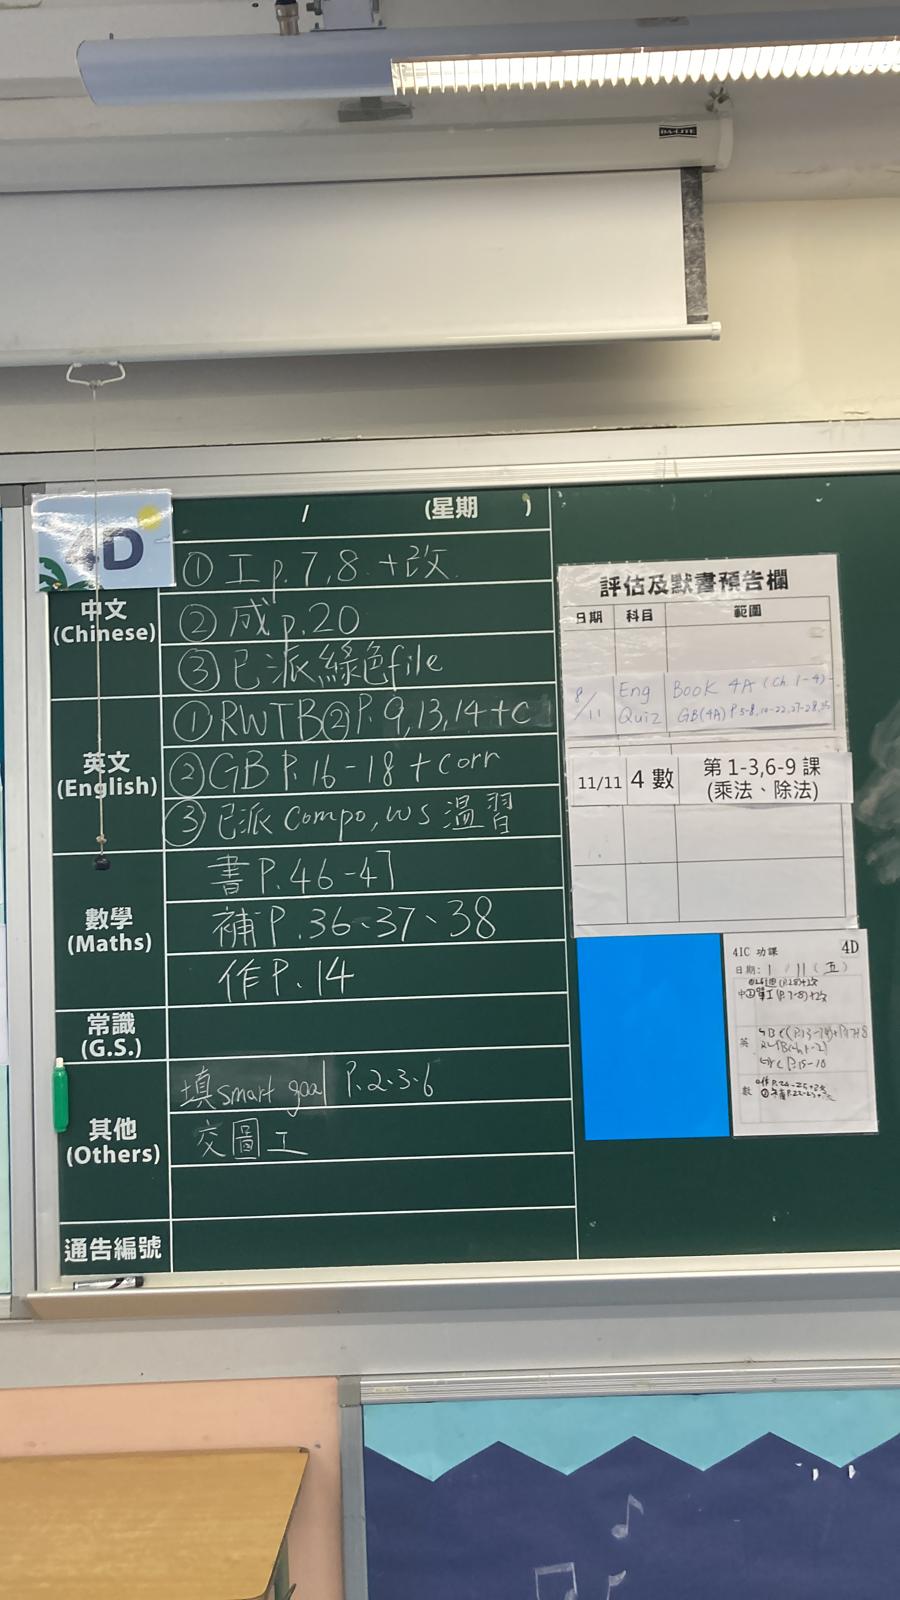 DA-LITE
4D
/ (星期 )
中文
(Chinese)
① 工 p.7,8 +改
② 成 p.20
③ 已派綠色file
英文
(English)
① RWTB② P.9,13,14+c
② GB P.16-18 + corr
③ 已派 compo, ws 溫習
數學
(Maths)
書 P.46-47
補 P.36、37、38
作 P.14
常識
(G.S.)
其他
(Others)
填 smart goal P.2、3、6
交圖工
通告編號
評估及默書預告欄
日期 科目 範圍
8/11 Eng Quiz Book 4A (Ch. 1-4)
GB(4A) P.5-8,
11/11 4數 第 1-3,6-9 課
(乘法、除法)
4IC 功課 4D
日期: 1 / 11 (五)
中
英
數